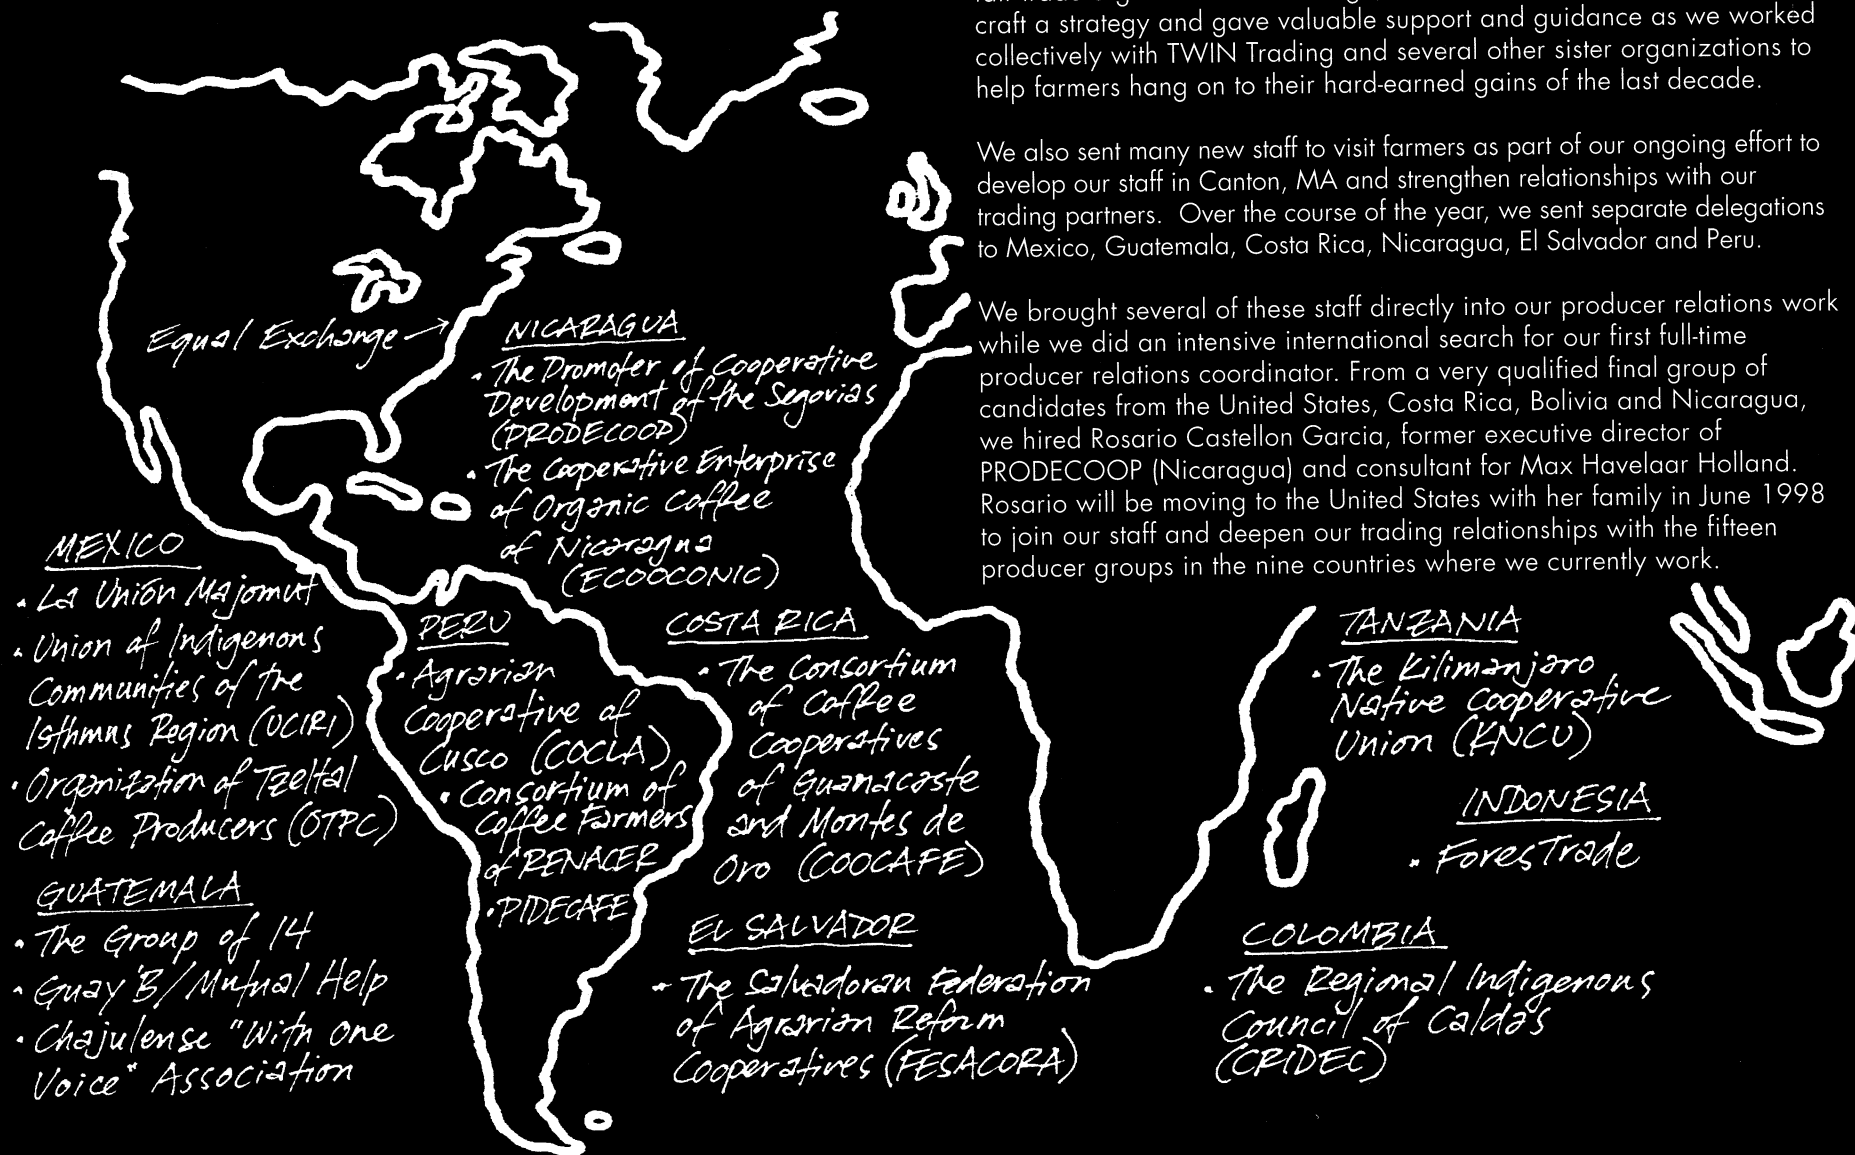 craft a strategy and gave valuable support and guidance as we worked
collectively with TWIN Trading and several other sister organizations to
help farmers hang on to their hard-earned gains of the last decade.
We also sent many new staff to visit farmers as part of our ongoing effort to
develop our staff in Canton, MA and strengthen relationships with our
trading partners.  Over the course of the year, we sent separate delegations
to Mexico, Guatemala, Costa Rica, Nicaragua, El Salvador and Peru.
We brought several of these staff directly into our producer relations work
while we did an intensive international search for our first full-time
producer relations coordinator. From a very qualified final group of
candidates from the United States, Costa Rica, Bolivia and Nicaragua,
we hired Rosario Castellon Garcia, former executive director of
PRODECOOP (Nicaragua) and consultant for Max Havelaar Holland.
Rosario will be moving to the United States with her family in June 1998
to join our staff and deepen our trading relationships with the fifteen
producer groups in the nine countries where we currently work.
Equal Exchange
NICARAGUA
• The Promoter of Cooperative
Development of the Segovias
(PRODECOOP)
• The Cooperative Enterprise
of Organic Coffee
of Nicaragua
(ECOOCONIC)
MEXICO
• La Unión Majomut
• Union of Indigenous
Communities of the
Isthmus Region (UCIRI)
• Organization of Tzeltal
Coffee Producers (OTPC)
GUATEMALA
• The Group of 14
• Guay'B/Mutual Help
• Chajulense "With One
Voice" Association
PERU
• Agrarian
Cooperative of
Cusco (COCLA)
• Consortium of
Coffee Farmers
of RENACER
• PIDECAFE
COSTA RICA
• The Consortium
of Coffee
Cooperatives
of Guanacaste
and Montes de
Oro (COOCAFE)
EL SALVADOR
• The Salvadoran Federation
of Agrarian Reform
Cooperatives (FESACORA)
TANZANIA
• The Kilimanjaro
Native Cooperative
Union (KNCU)
INDONESIA
• ForesTrade
COLOMBIA
• The Regional Indigenous
Council of Caldas
(CRIDEC)